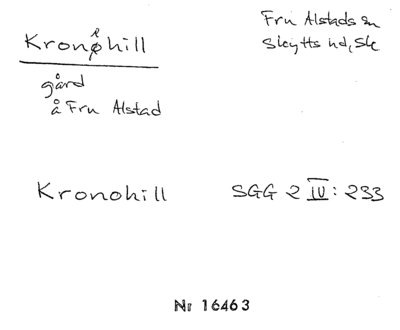 Kronehill
Fru Alstads sn
Skytts hd, Sk
gård
å Fru Alstad
Kronohill
SGG 2 IV: 233
Nr 16463